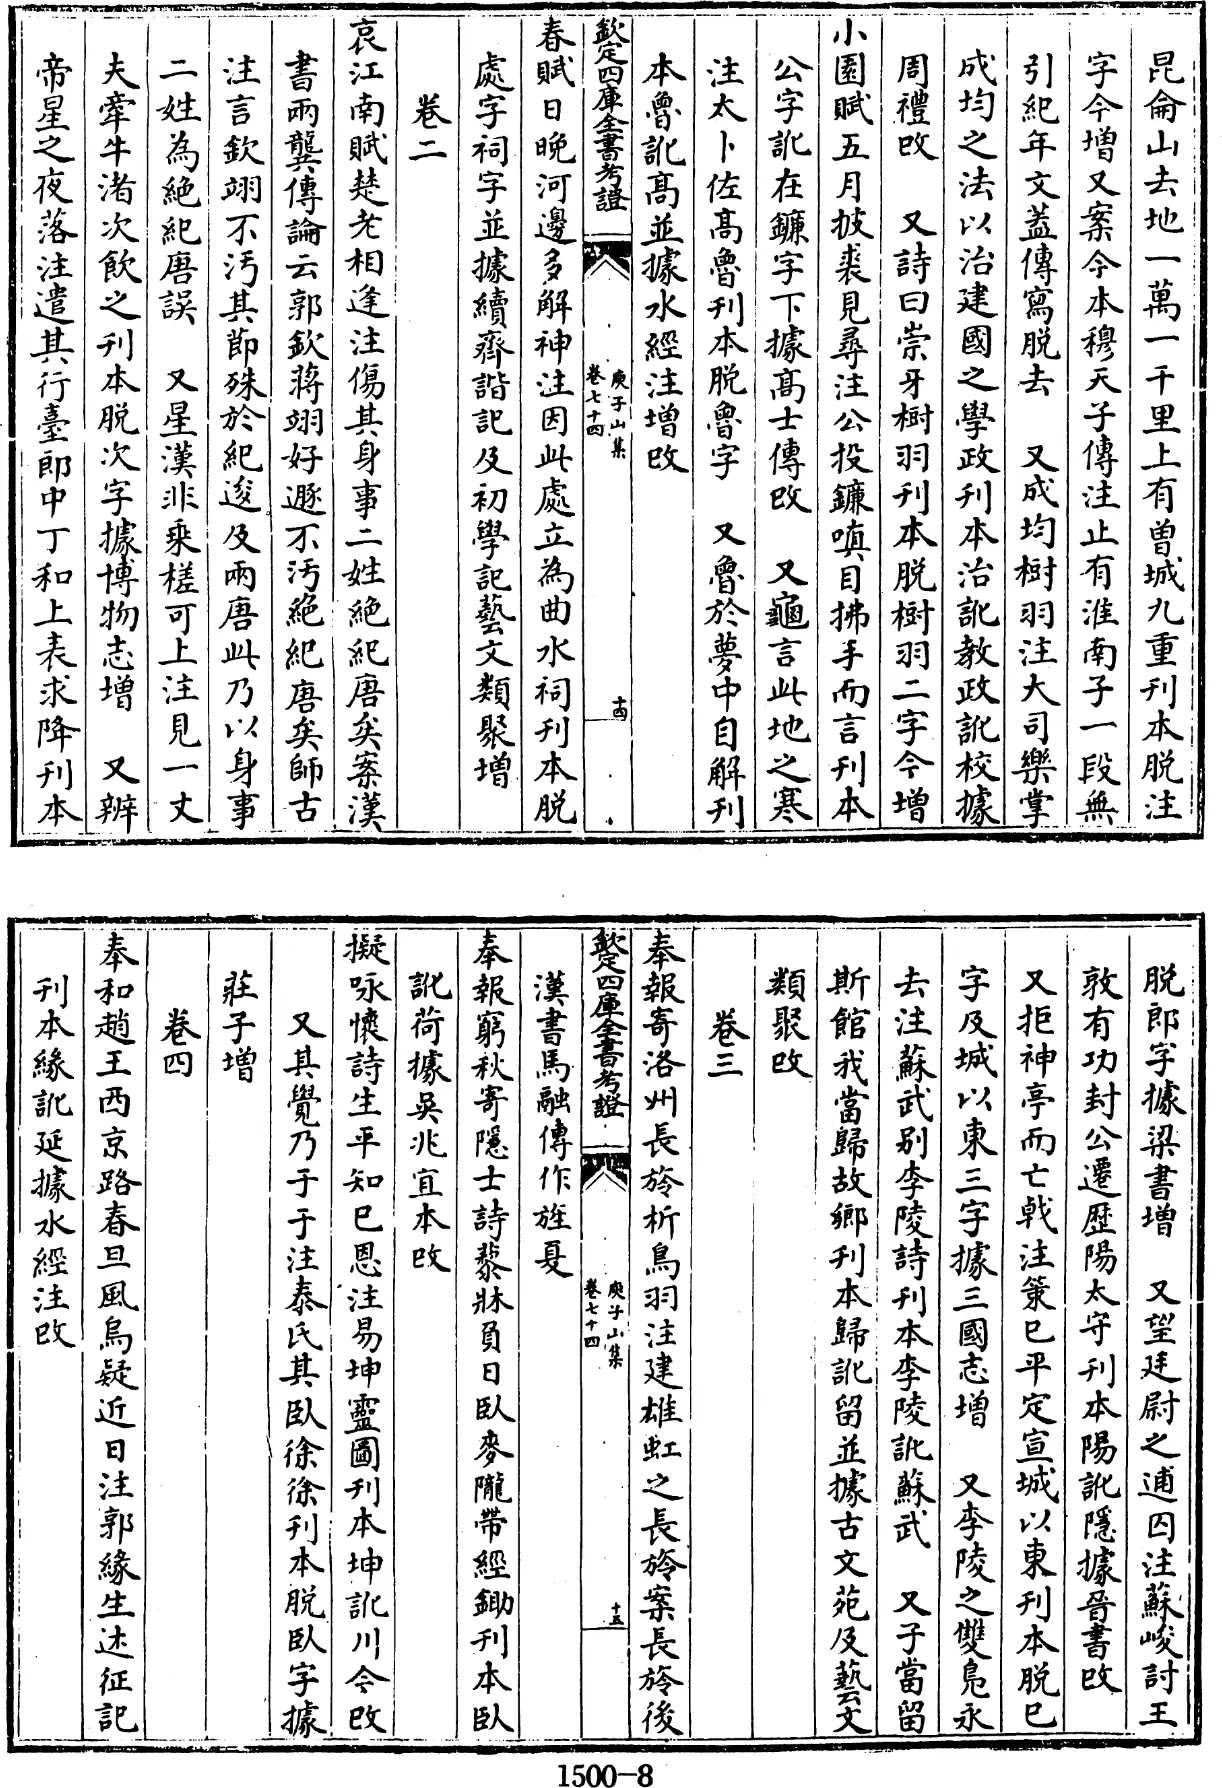 昆侖山去地一萬一千里上有曾城九重刊本脱注
字今增又案今本穆天子傳注止有淮南子一段無
引紀年文蓋傳寫脱去　又成均樹羽注大司樂掌
成均之法以治建國之學政刊本治訛教政訛校據
周禮改　又詩曰崇牙樹羽刊本脱樹羽二字今增
小園賦五月披裘見尋注公投鐮嗔目拂手而言刊本
公字訛在鐮字下據高士傳改　又龜言此地之寒
注太卜佐高魯刊本脱魯字　又魯於夢中自解刊
本魯訛高並據水經注增改
欽定四庫全書考證
庾子山集
卷七十四
十四
春賦日晚河邊多解神注因此處立為曲水祠刊本脱
處字祠字並據續齊諧記及初學記藝文類聚增
卷二
哀江南賦楚老相逢注傷其身事二姓絶紀唐矣案漢
書兩龔傳論云郭欽蔣翊好遯不汚絶紀唐矣師古
注言欽翊不汚其節殊於紀逡及兩唐此乃以身事
二姓為絶紀唐誤　又星漢非乘槎可上注見一丈
夫牽牛渚次飲之刊本脱次字據博物志增　又辨
帝星之夜落注遣其行臺郎中丁和上表求降刊本
脱郎字據梁書增　又望廷尉之逋囚注蘇峻討王
敦有功封公遷歷陽太守刊本陽訛隱據晉書改
又拒神亭而亡戟注策已平定宣城以東刊本脱已
字及城以東三字據三國志增　又李陵之雙鳬永
去注蘇武别李陵詩刊本李陵訛蘇武　又子當留
斯館我當歸故鄉刊本歸訛留並據古文苑及藝文
類聚改
卷三
奉報寄洛州長旍析鳥羽注建雄虹之長旍案長旍後
欽定四庫全書考證
庾子山集
卷七十四
十五
漢書馬融傳作旌夏
奉報窮秋寄隱士詩藜牀負日臥麥隴帶經鋤刊本臥
訛荷據吳兆宜本改
擬咏懷詩生平知已恩注易坤靈圖刊本坤訛川今改
又其覺乃于于注泰氏其臥徐徐刊本脱臥字據
莊子增
卷四
奉和趙王西京路春旦風烏疑近日注郭緣生述征記
刊本緣訛延據水經注改
1500-8